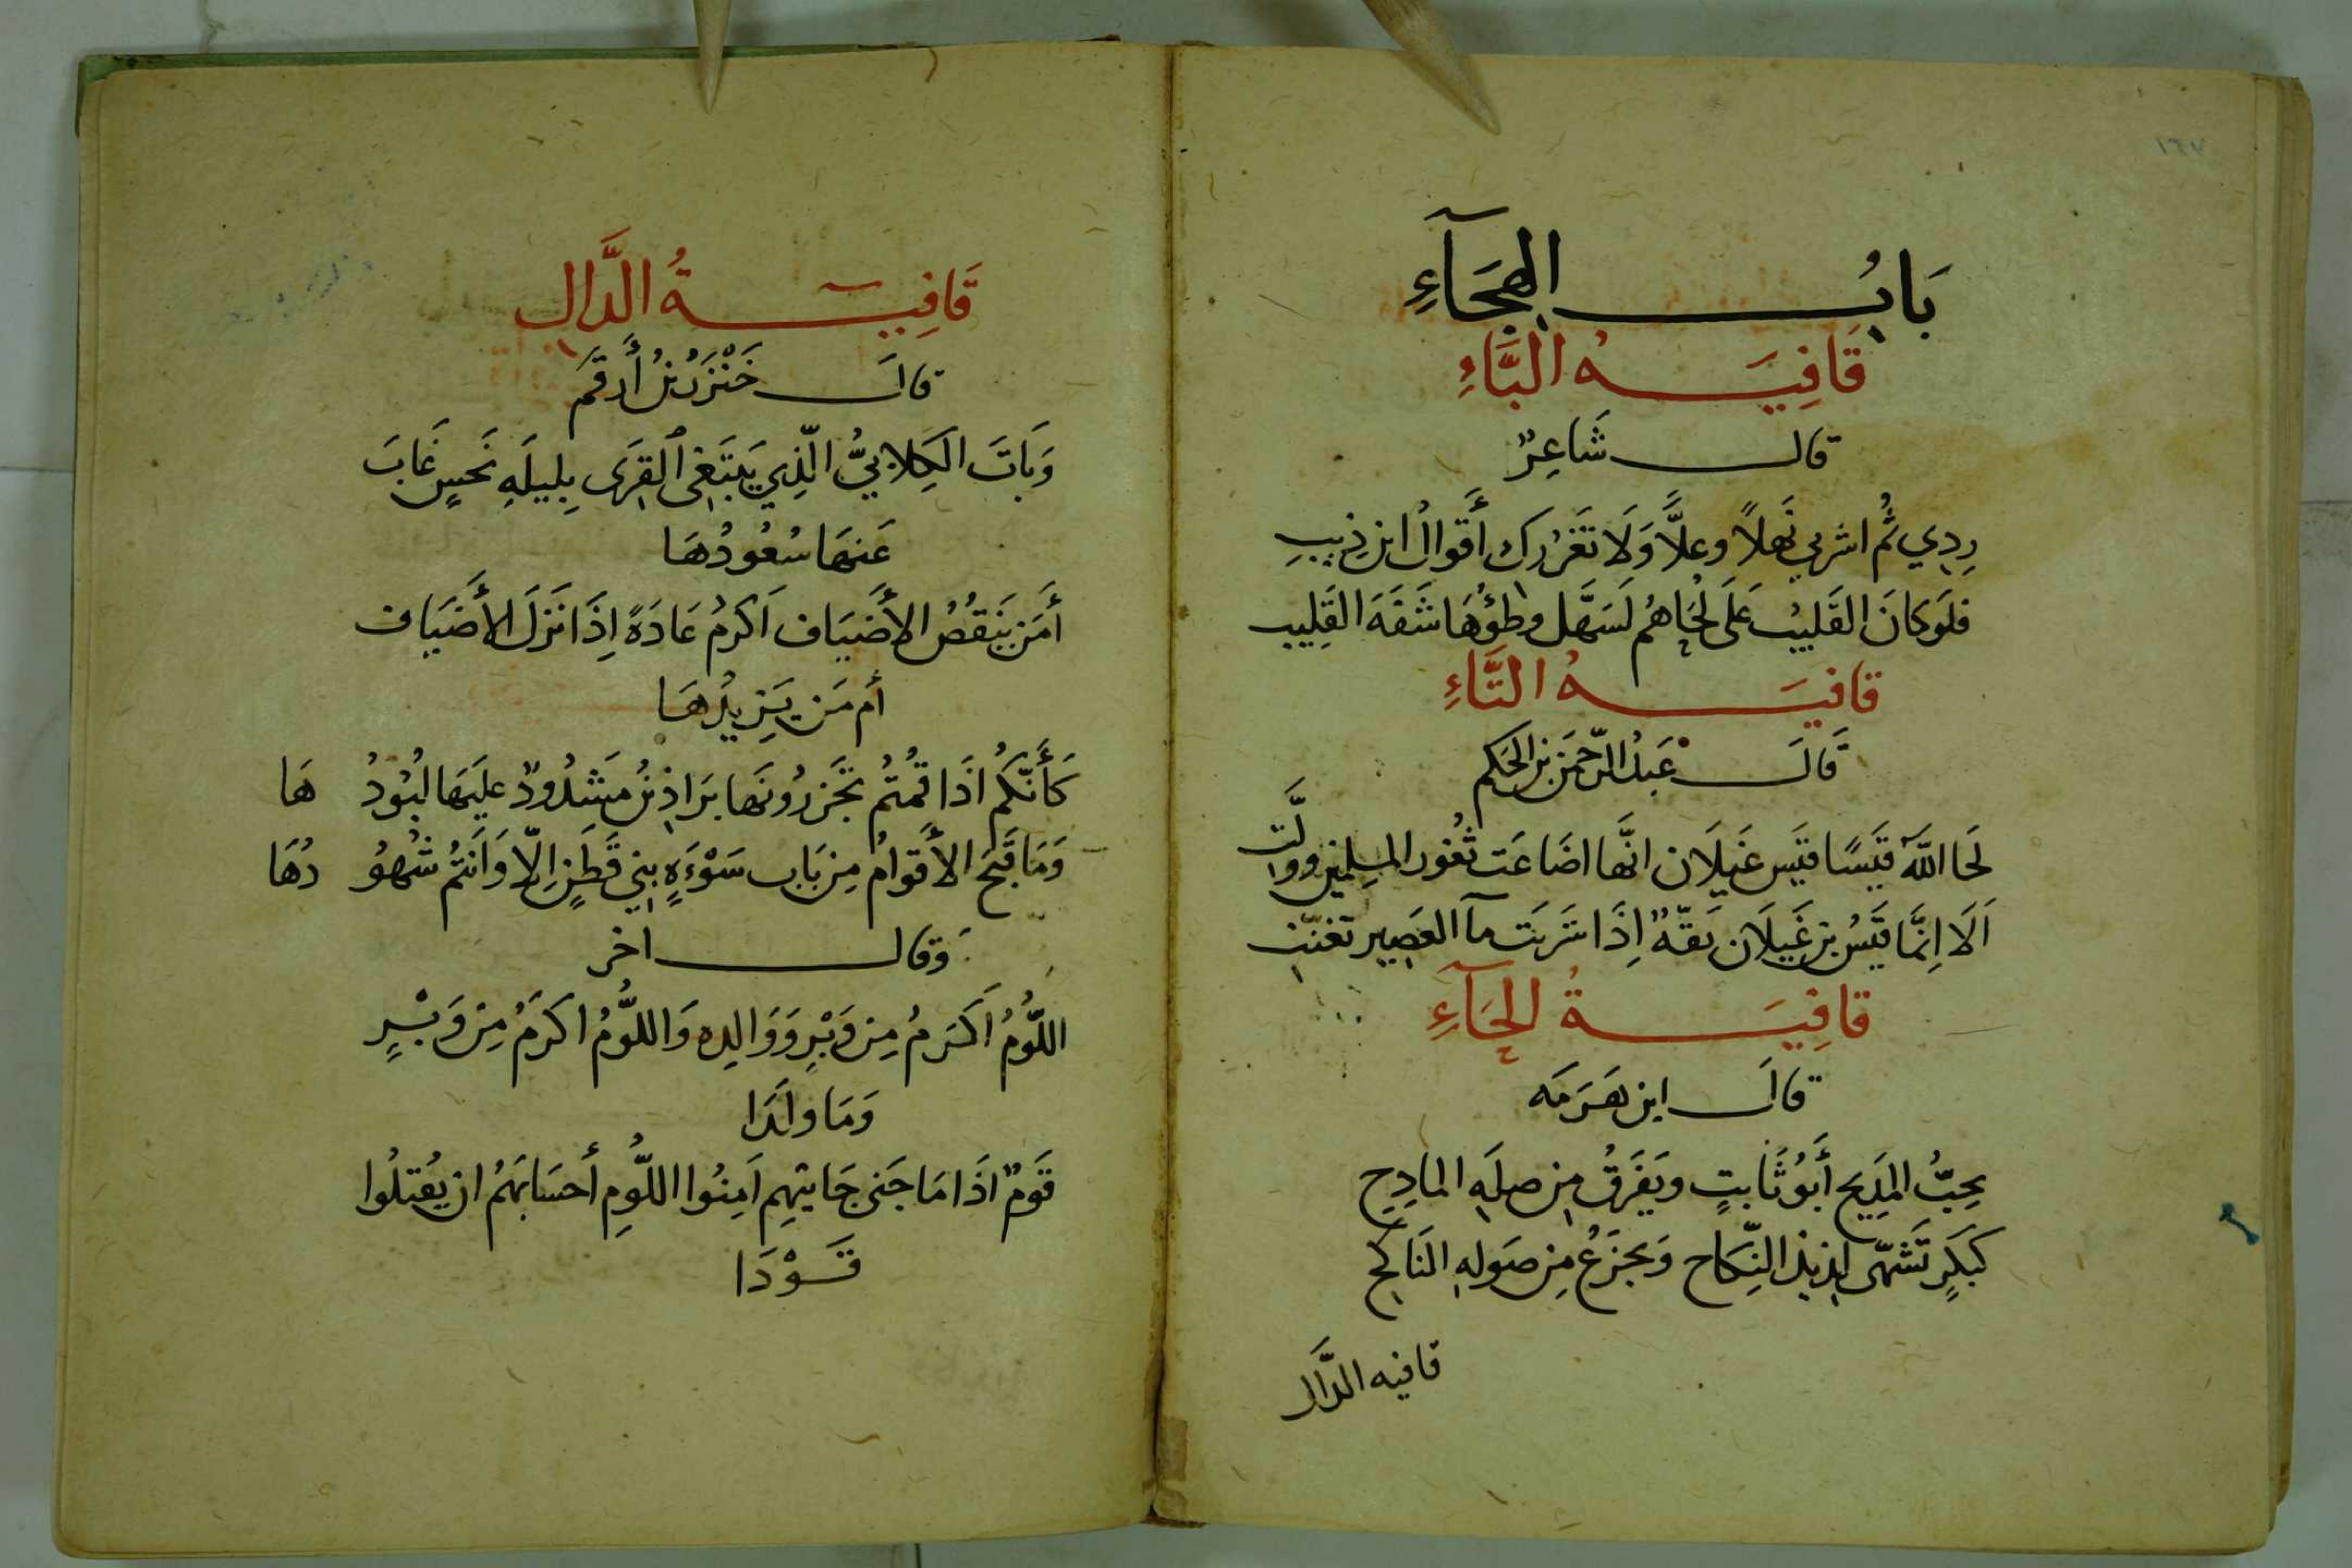 ١٦٧
بَابُ الهِجَآءِ
قَافِيَةُ البَّاءِ
قال شَاعِرٌ
رِدِي ثُم اشربي نَهلاً وعلاًّ وَلَا تَغرُرك أَقوالُ ابن ذِيبِ
فلَو كانَ القَليبُ عَلَى لُحَاهُم لَسَهَّل وطؤُهَا شَفَةَ القَلِيبِ
قافيَةُ التَّاءِ
قَالَ عَبدُ الرّحمَن بن الحَكم
لَحَا اللَّهَ قَيسًا قَيس عَيلَان انّها اضَاعَت ثُغُور المسلِمين وَوَلَّت
اَلَا اِنَّمَا قَيسُ بن عَيلَان بَقّةٌ اِذَا شَرِبَت مآ العَصِير تَغنّت
قَافِيَةُ الحَآءِ
قالَ ابن هَرمَه
يحِبُّ المَدِيح أَبُو ثَابتٍ ويَفرَقُ مِن صِلَهِ المادِحِ
كَبَكرٍ تَشَهّى لذيذ النِّكاح وَيجزَعُ مِن صَولهِ النَاكح
قافيه الدَّال
قَافِيَةُ الدَّالِ
قالَ خَنْزَرُ بنُ أَرقَم
وَبَاتَ الكِلابيُّ الّذِي يَبتَغِى القِرَى بِليلَهِ نَحسٍ غَابَ
عَنهَا سُعُودُهَا
أَمَن يَنقُصُ الأَضيَاف اَكرمُ عَادَةً اِذَا نَزلَ الأَضيَاف
أم مَن يَزِيدُهَا
كَأَنّكُم اذَا قمُتُم تَجزرُونَها بَرَاذِنُ مَشدُودٌ عليَها لُبُودُ هَا
وَمَا فَتَحَ الأَقوَامُ مِن بَاب سَوْءَةٍ بني قَطَنٍ اِلّا وَاَنتُم شُهوُ دُهَا
وَقال اخر
اللُّومُ اَكَرمُ مِن وَبْرٍ وَوَالِدِه وَاللُّومُ اكرَمُ مِن وَبْرٍ
وَمَا ولَدَا
قَومٌ اذَا مَا جَنى جَانيْهِم اَمِنُوا اللُّومِ أَحسَابَهُم ان يُقتلُوا
قَوْدَا